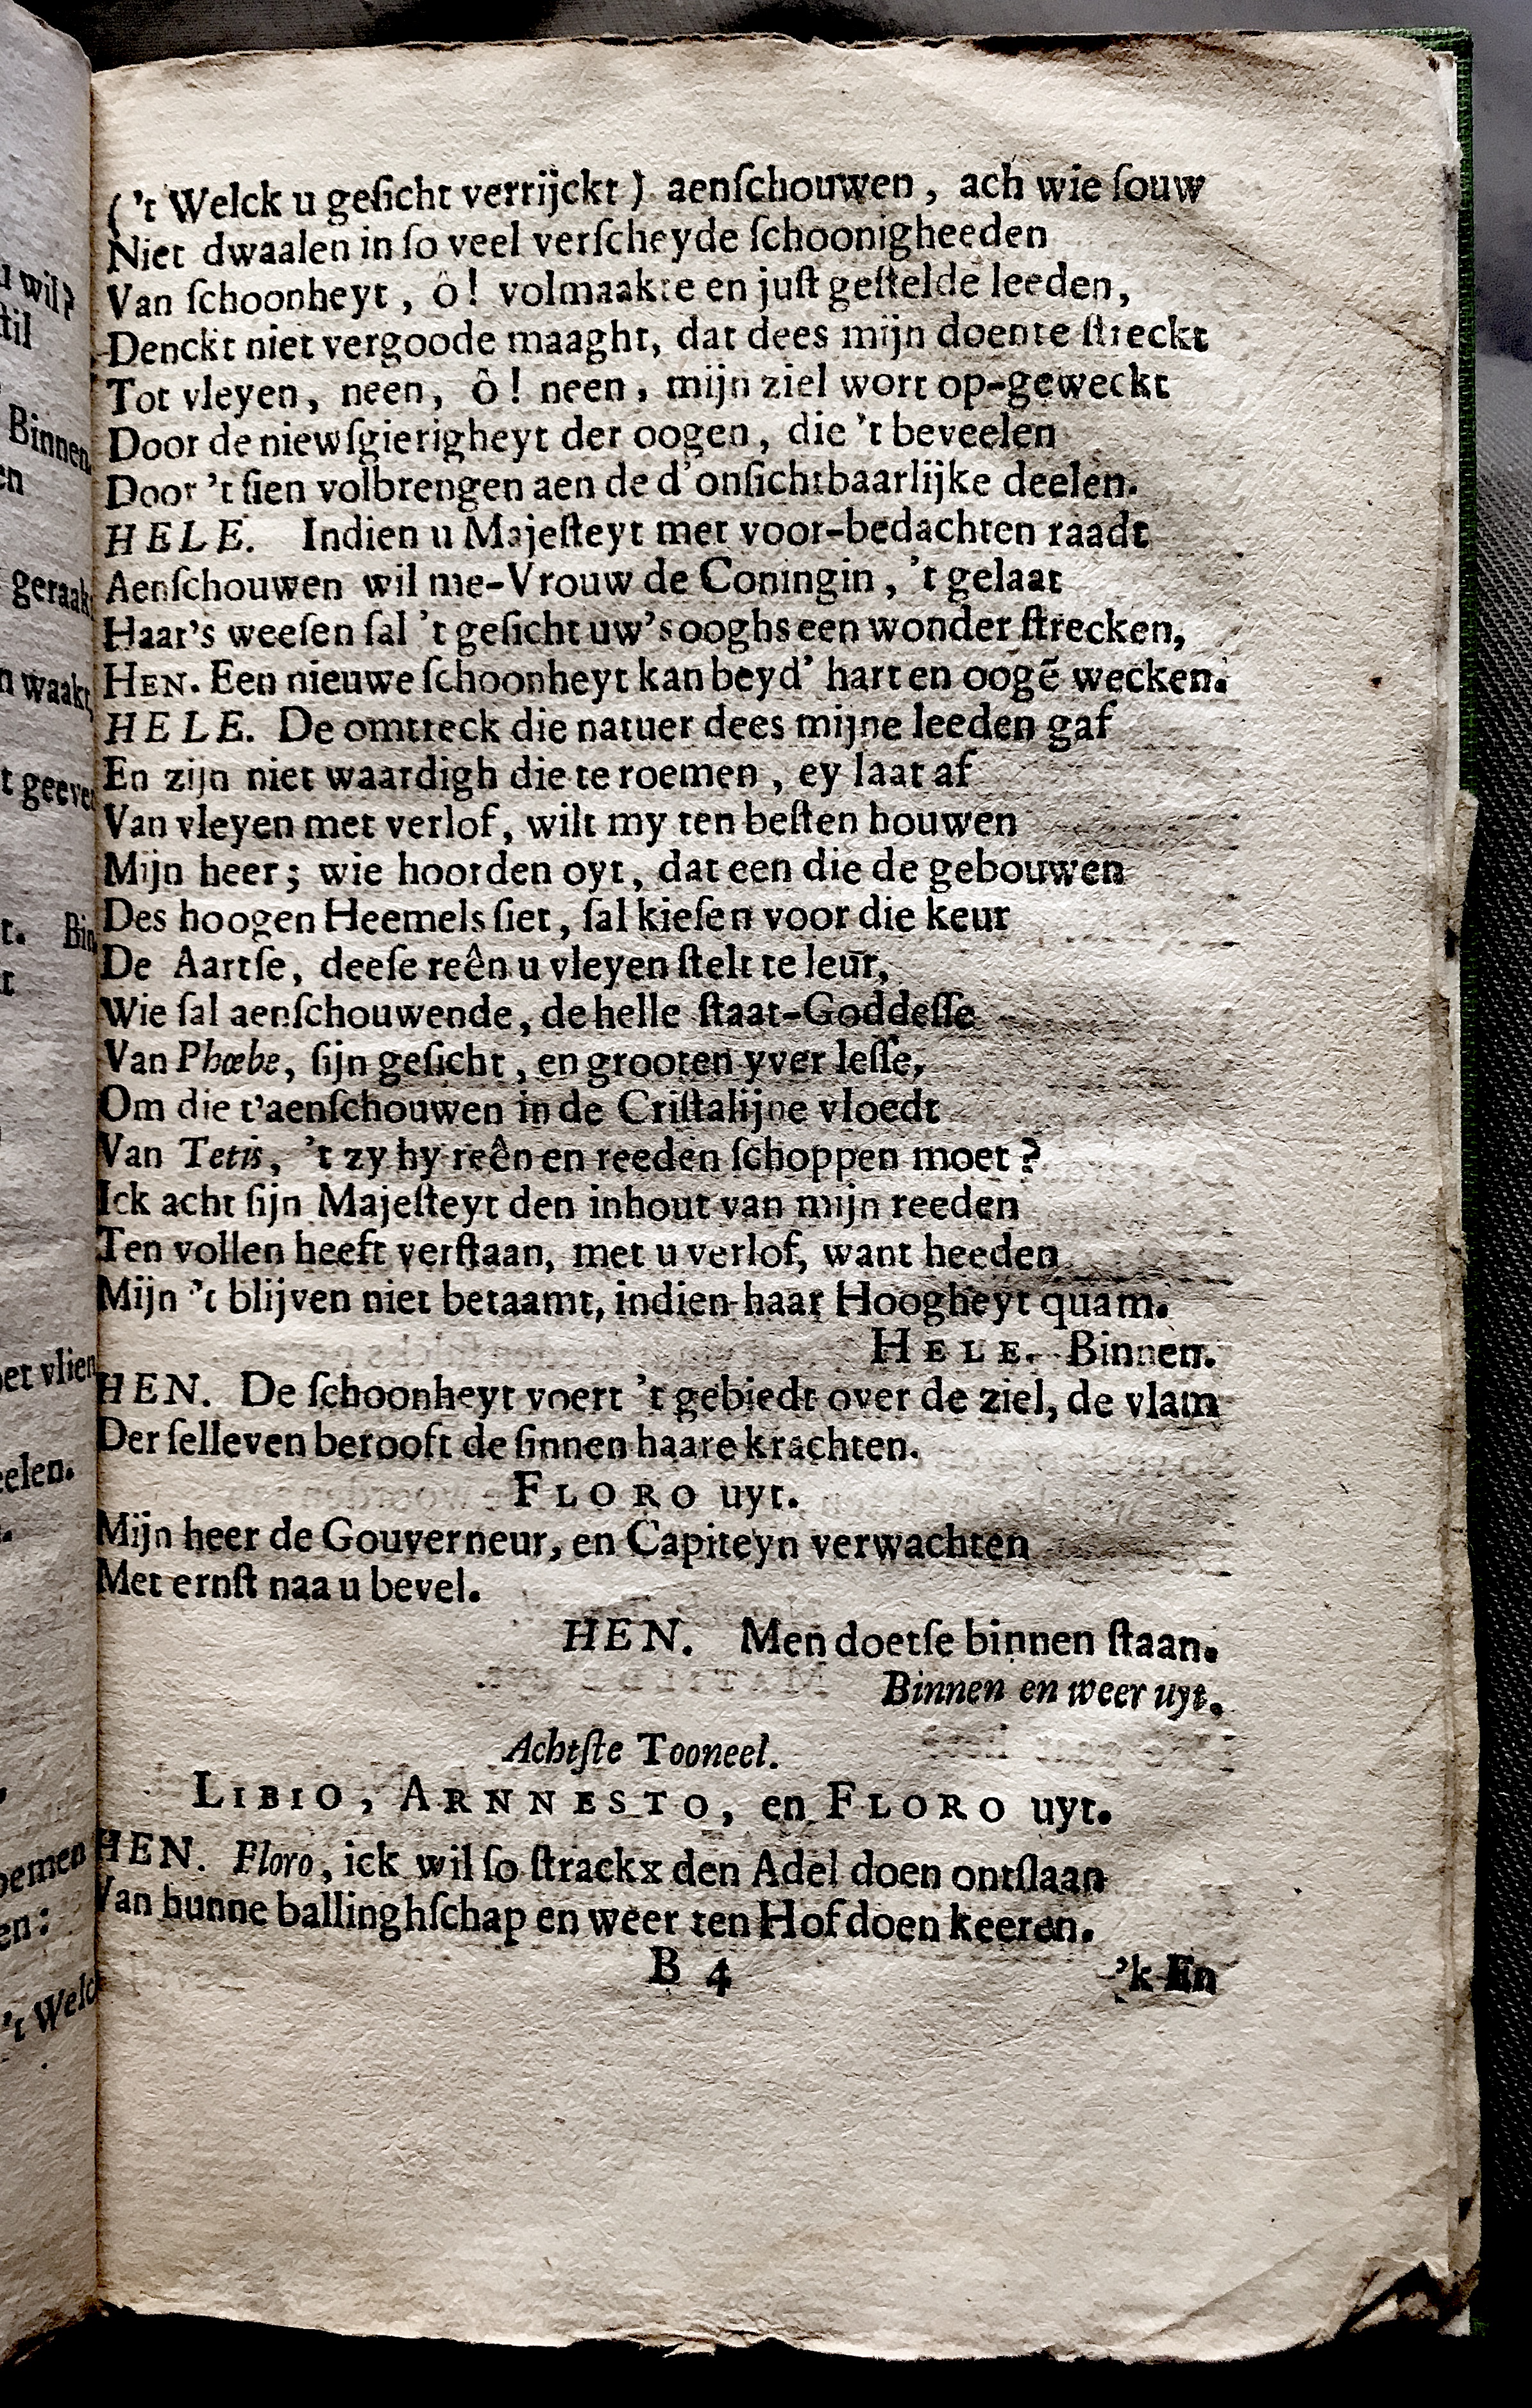 ('t Welck u geſicht verrijckt) aenſchouwen, ach wie ſouw
Niet dwaalen in ſo veel verſcheyde ſchoonigheeden
Van ſchoonheyt, ô! volmaakte en juſt geſtelde leeden,
Denckt niet vergoode maaght, dat dees mijn doente ſtreckt
Tot vleyen, neen, ô! neen, mijn ziel wort op-geweckt
Door de niewſgierigheyt der oogen, die 't beveelen
Door 't ſien volbrengen aen de d'onſichtbaarlijke deelen.
HELE. Indien u Majeſteyt met voor-bedachten raadt
Aenſchouwen wil me-Vrouw de Coningin, 't gelaat
Haar's weeſen ſal 't geſicht uw's ooghs een wonder ſtrecken,
HEN. Een nieuwe ſchoonheyt kan beyd' hart en oogē wecken.
HELE. De omtreck die natuer dees mijne leeden gaf
En zijn niet waardigh die te roemen, ey laat af
Van vleyen met verlof, wilt my ten beſten houwen
Mijn heer; wie hoorden oyt, dat een die de gebouwen
Des hoogen Heemels ſiet, ſal kieſen voor die keur
De Aartſe, deeſe reên u vleyen ſtelt te leur,
Wie ſal aenſchouwende, de helle ſtaat-Goddeſſe
Van Phœbe, ſijn geſicht, en grooten yver leſſe,
Om die t'aenſchouwen in de Criſtalijne vloedt
Van Tetis, 't zy hy reên en reeden ſchoppen moet?
Ick acht ſijn Majeſteyt den inhout van mijn reeden
Ten vollen heeft verſtaan, met u verlof, want heeden
Mijn 't blijven niet betaamt, indien haar Hoogheyt quam.
HELE. Binnen.
HEN. De ſchoonheyt voert 't gebiedt over de ziel, de vlam
Der ſelleven berooft de ſinnen haare krachten.
FLORO uyt.
Mijn heer de Gouverneur, en Capiteyn verwachten
Met ernſt naa u bevel.
HEN. Men doetſe binnen ſtaan.
Binnen en weer uyt.
Achtſte Tooneel.
LIBIO, ARNNESTO, en FLORO uyt.
HEN. Floro, ick wil ſo ſtrackx den Adel doen ontſlaan
Van hunne ballinghſchap en weer ten Hof doen keeren.
B 4 'k En